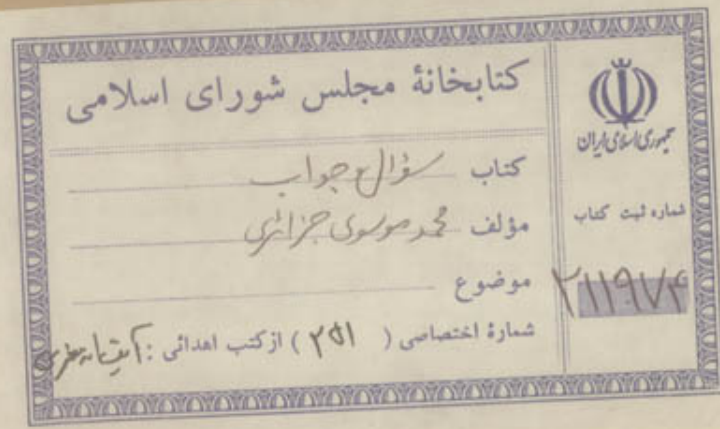 کتابخانهٔ مجلس شورای اسلامی
کتاب سؤال و جواب
مؤلف محمد موسوی جزائری
موضوع
شمارهٔ اختصاصی ( ۲۵۱ ) از کتب اهدائی :
جمهوری اسلامی ایران
شماره ثبت کتاب
۲۱۱۹۷۴